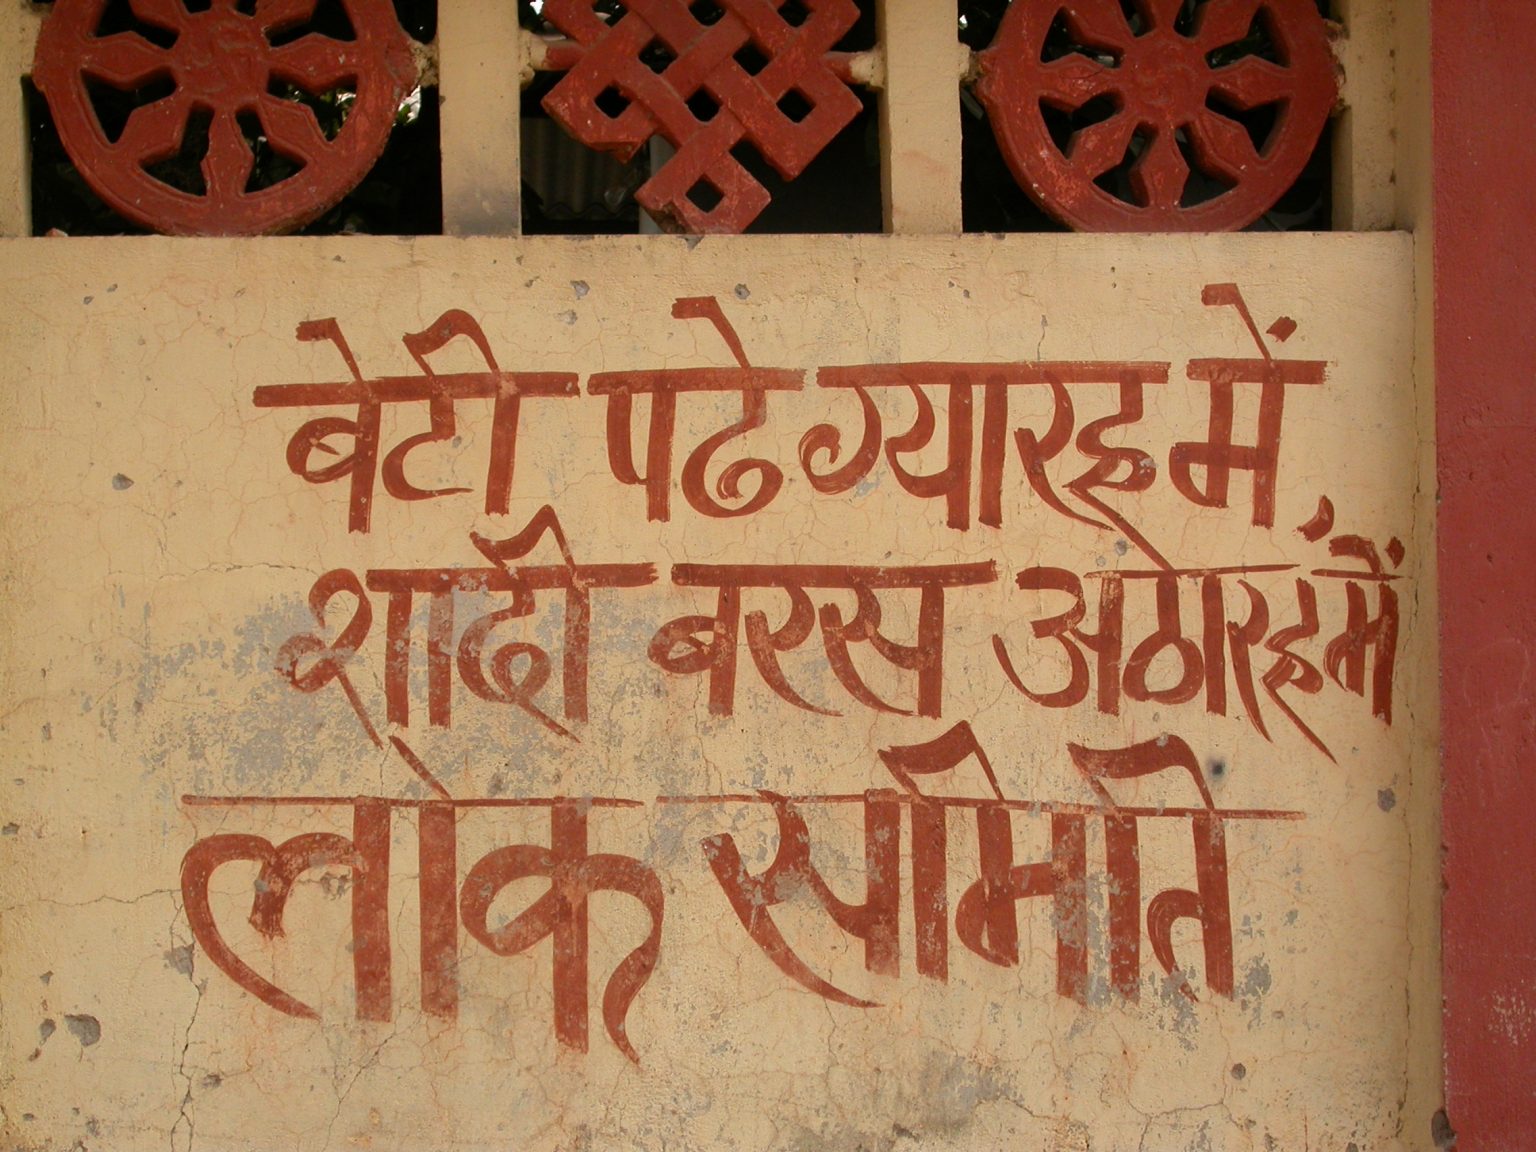 बेटी पढे ग्यारह में,
शादी बरस अठारह में
लोक समिति